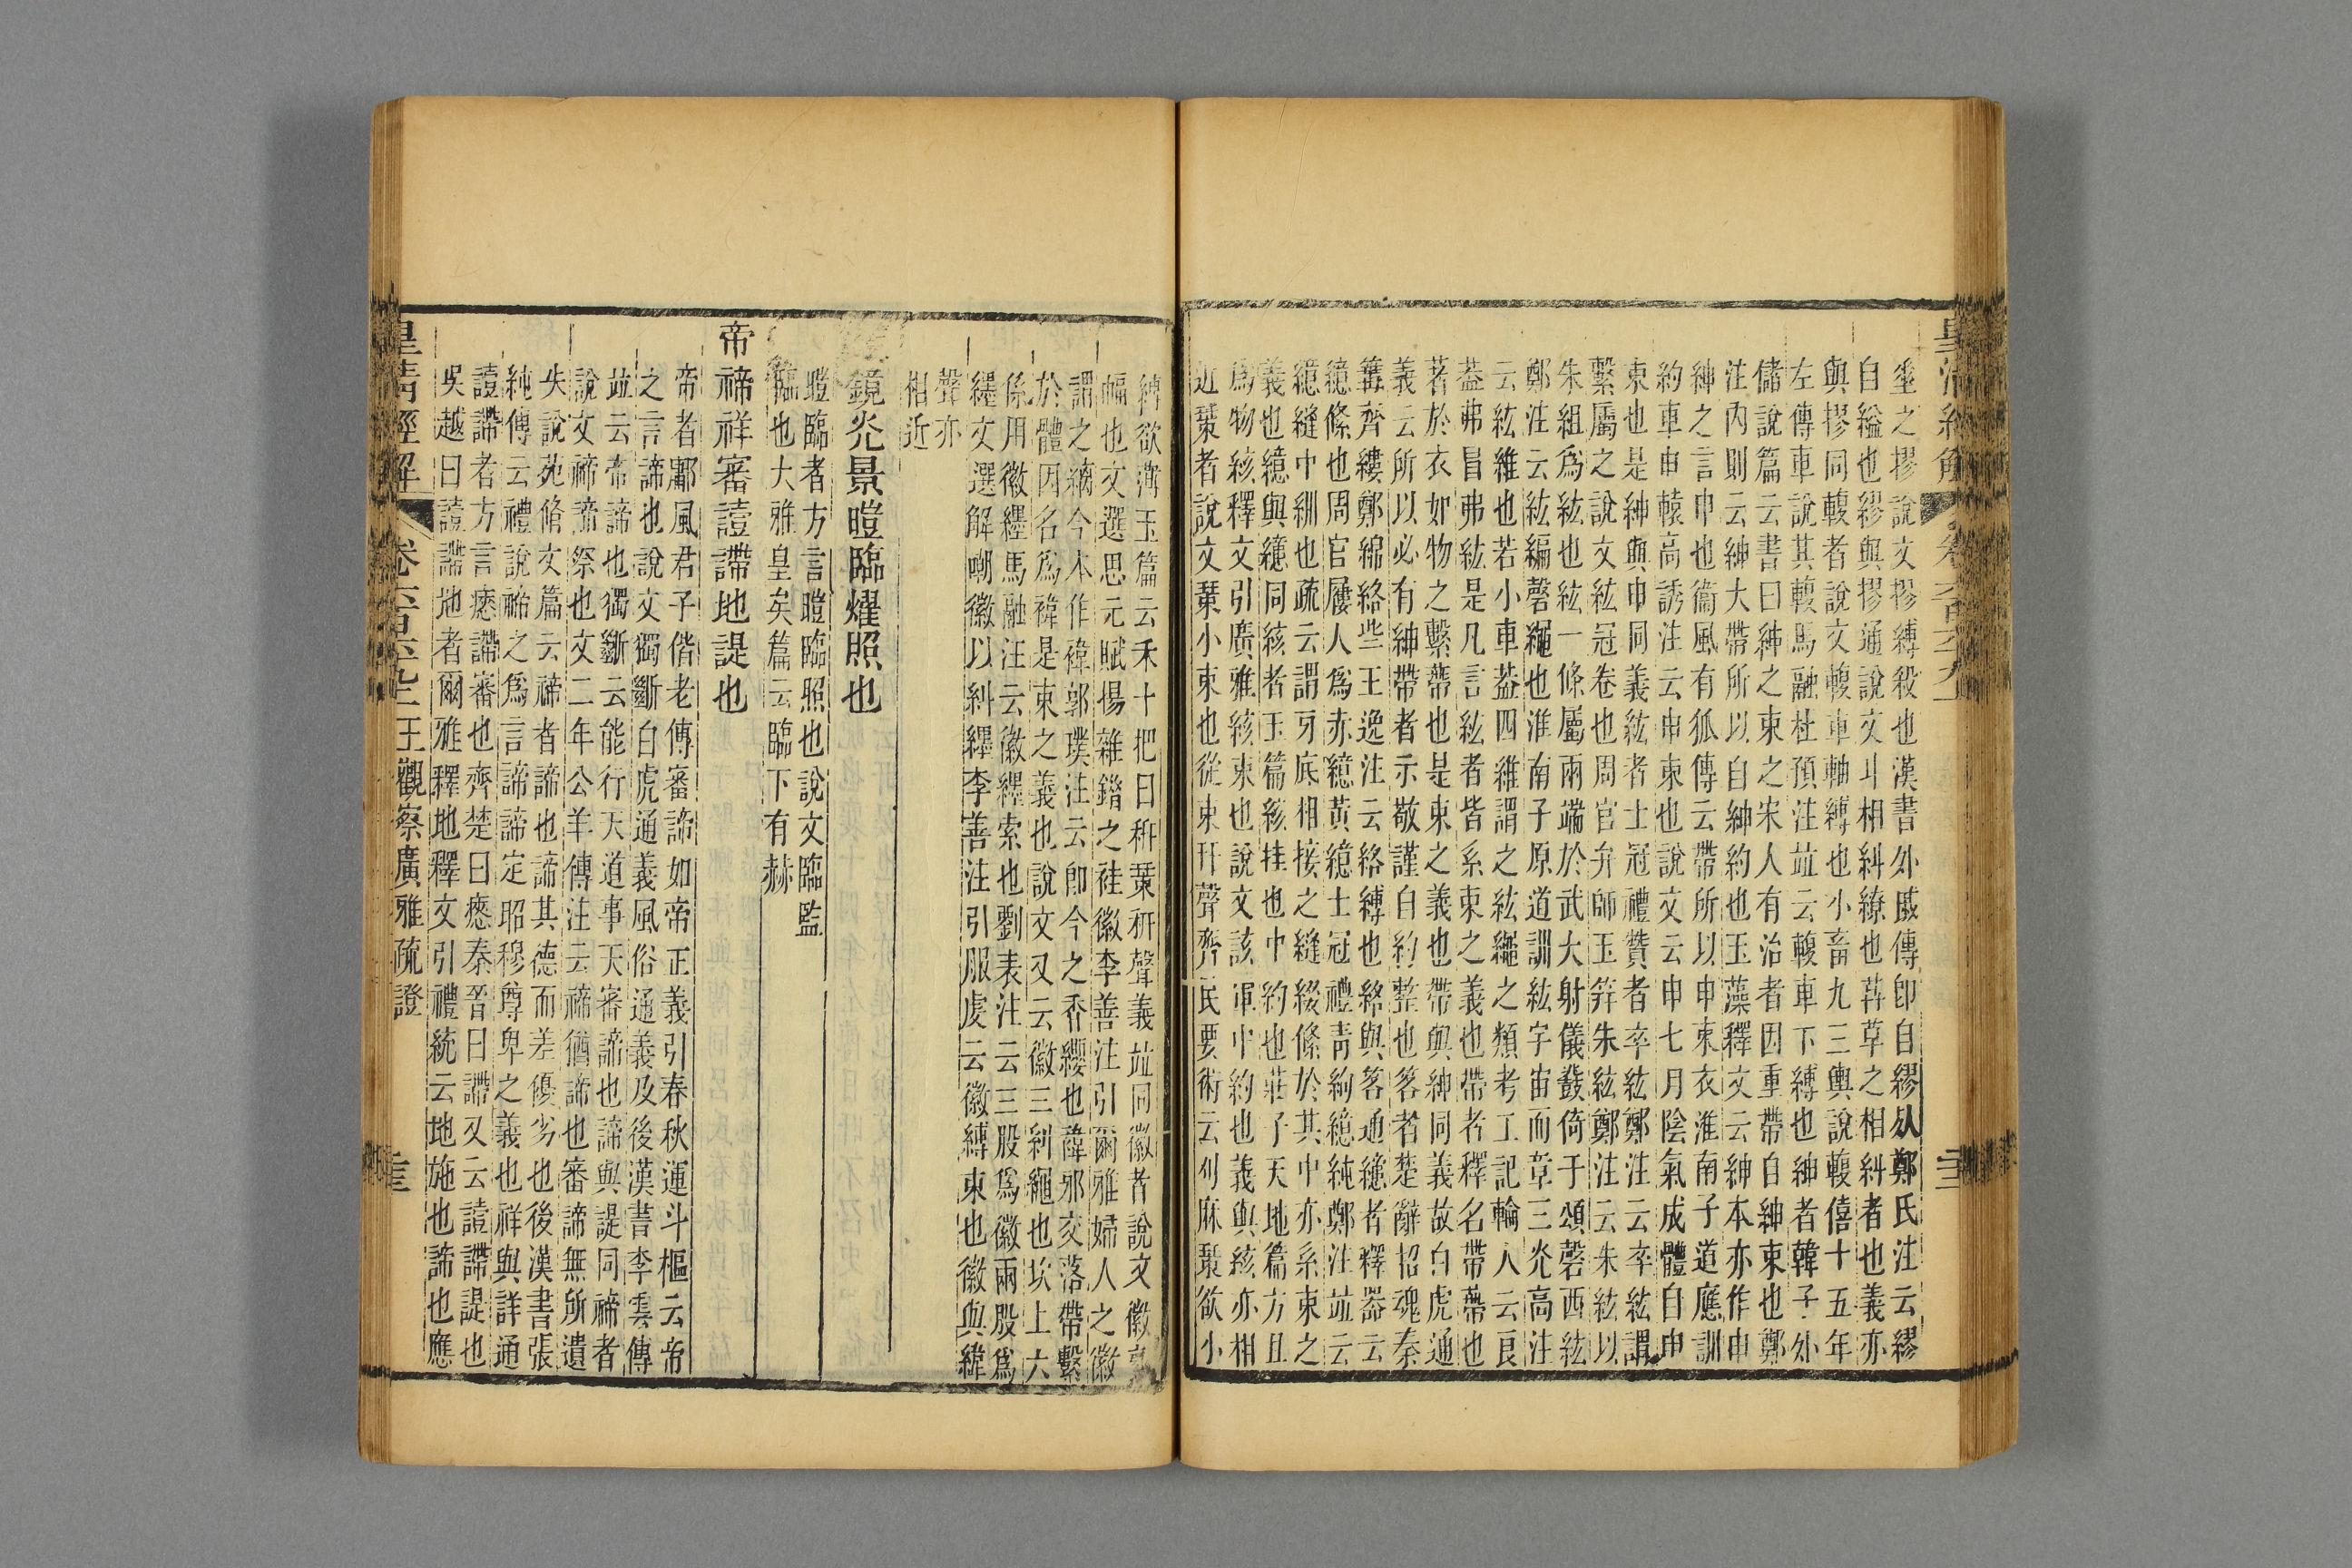 皇清經解
卷六百六十九
垂之摎說文摎縛殺也漢書外戚傳卽自繆如鄭氏注云繆
自縊也繆與摎通說文丩相糾繚也茻草之相糾者也義亦
與摎同䡩者說文䡩車軸縛也小畜九三輿說䡩僖十五年
左傳車說其䡩馬融杜預注竝云䡩車下縛也紳者韓子外
儲說篇云書曰紳之束之宋人有治者因重帶自紳束也鄭
注內則云紳大帶所以自紳約也玉藻釋文云紳本亦作申
紳之言申也衞風有狐傳云帶所以申束衣淮南子道應訓
約車申轅高誘注云申束也說文云申七月陰氣成體自申
束也是紳與申同義紘者士冠禮贊者卒紘鄭注云卒紘謂
繫屬之說文紘冠卷也周官弁師玉笄朱紘鄭注云朱紘以
朱組爲紘也紘一條屬兩端於武大射儀鼗倚于頌磬西紘
鄭注云紘編磬繩也淮南子原道訓紘宇宙而章三光高注
云紘維也若小車葢四維謂之紘繩之類考工記輪人云良
葢弗冒弗紘是凡言紘者皆系束之義也帶者釋名帶蔕也
著於衣如物之繫蔕也是束之義也帶與紳同義故白虎通
義云所以必有紳帶者示敬謹自約整也笿者楚辭招魂秦
篝齊縷鄭綿絡些王逸注云絡縛也絡與笿通繶者釋器云
繶絛也周官屨人爲赤繶黃繶士冠禮靑絇繶純鄭注竝云
繶縫中紃也疏云謂牙底相接之縫綴絛於其中亦系束之
義也繶與繶同絯者玉篇絯挂也中約也莊子天地篇方且
爲物絯釋文引廣雅絯束也說文該軍中約也義與絯亦相
近㯻者說文㯻小束也從束幵聲齊民要術云刈麻欲小
縛欲薄玉篇云禾十把曰䅈㯻䅈聲義竝同徽者說文徽
幅也文選思元賦揚雜錯之袿徽李善注引爾雅婦人之徽
謂之縭今本作褘郭璞注云卽今之香纓也褘邪交落帶繫
於體因名爲褘是束之義也說文又云徽三糾繩也坎上六
係用徽纆馬融注云徽纆索也劉表注云三股爲徽兩股爲
纆文選解嘲徽以糾纆李善注引服虔云徽縛束也徽與緯
聲亦
相近
鏡光景暟臨燿照也
暟臨者方言暟臨照也說文臨監
臨也大雅皇矣篇云臨下有赫
帝禘祥審諲諦地諟也
帝者鄘風君子偕老傳審諦如帝正義引春秋運斗樞云帝
之言諦也說文獨斷白虎通義風俗通義及後漢書李雲傳
竝云帝諦也獨斷云能行天道事天審諦也諦與諟同禘者
說文禘禘祭也文二年公羊傳注云禘猶諦也審諦無所遺
失說苑脩文篇云禘者諦也諦其德而差優劣也後漢書張
純傳云禮說禘之爲言諦諦定昭穆尊卑之義也祥與詳通
諲諦者方言瘱諦審也齊楚曰瘱秦晉曰諦又云諲諦諟也
吳越曰諲諦地者爾雅釋地釋文引禮統云地施也諦也應
皇淸經解
卷六百六十九
王觀察廣雅疏證